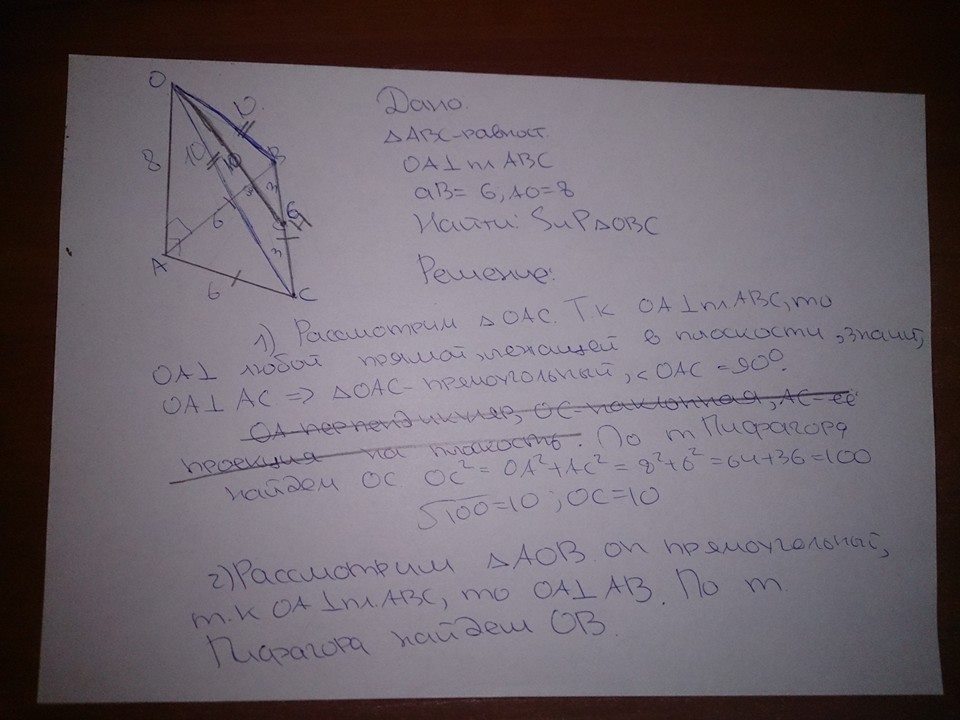 O
8
10
10
10
B
3
3
6
6
3
A
6
C
Дано.
△ABC-равност.
OA⊥пл ABC
aB= 6, AO=8
Найти: SиP△OBC
Решение:
1) Рассмотрим △OAC. Т.к OA⊥пл ABC, то
OA⊥ любой прямой, лежащей в плоскости, значит,
OA⊥ AC => △OAC-прямоугольный, <OAC =90°.
OA перпендикуляр, OC-наклонная, AC-её
проекция на плоскость. По т Пифагора
найдем OC OC²= OA²+AC²= 8²+6²=64+36=100
√100=10 ; OC=10
2)Рассмотрим △AOB. он прямоугольный,
т.к OA⊥пл.ABC, то OA⊥AB. По т.
Пифагора найдем OB.